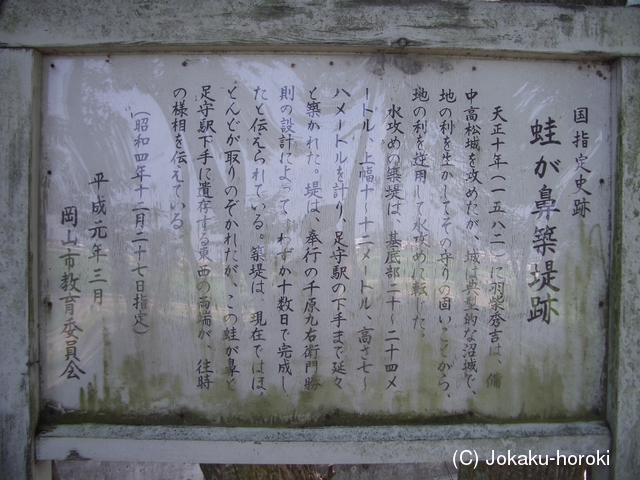 国指定史跡
蛙が鼻築堤跡
天正十年（一五八二）に羽柴秀吉は、備
中高松城を攻めたが、城は典型的な沼城で、
地の利を生かしてその守りの固いことから、
地の利を逆用して水攻めに転じた。
水攻めの築堤は、基底部二十〜二十四メ
ートル、上幅十〜十二メートル、高さ七〜
八メートルを計り、足守駅の下手まで延々
と築かれた。堤は、奉行の千原九右衛門勝
則の設計によって、わずか十数日で完成し
たと伝えられている。築堤は、現在ではほ
とんどが取りのぞかれたが、この蛙が鼻と
足守駅下手に遺存する東西の両端が、往時
の様相を伝えている。
（昭和四年十二月二十七日指定）
平成元年三月
岡山市教育委員会
(C) Jokaku-horoki